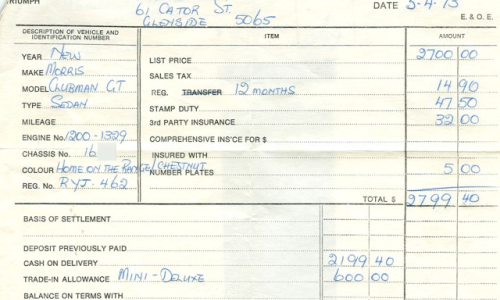 TRIUMPH
61 CATOR ST. DATE 5-4-73
GLENSIDE 5065
E. & O. E.
DESCRIPTION OF VEHICLE AND IDENTIFICATION NUMBER ITEM AMOUNT
YEAR NEW LIST PRICE 2700 00
MAKE MORRIS SALES TAX
MODEL CLUBMAN GT REG. TRANSFER 12 MONTHS 14 90
TYPE SEDAN STAMP DUTY 47 50
MILEAGE 3rd PARTY INSURANCE 32 00
ENGINE No. 1200-1329 COMPREHENSIVE INS'CE FOR $
CHASSIS No. 16 INSURED WITH
COLOUR HOME ON THE RANGE/CHESTNUT NUMBER PLATES 5 00
REG. No. RYJ-462
TOTAL $ 2799 40
BASIS OF SETTLEMENT
DEPOSIT PREVIOUSLY PAID
CASH ON DELIVERY 2199 40
TRADE-IN ALLOWANCE MINI-DELUXE 600 00
BALANCE ON TERMS WITH